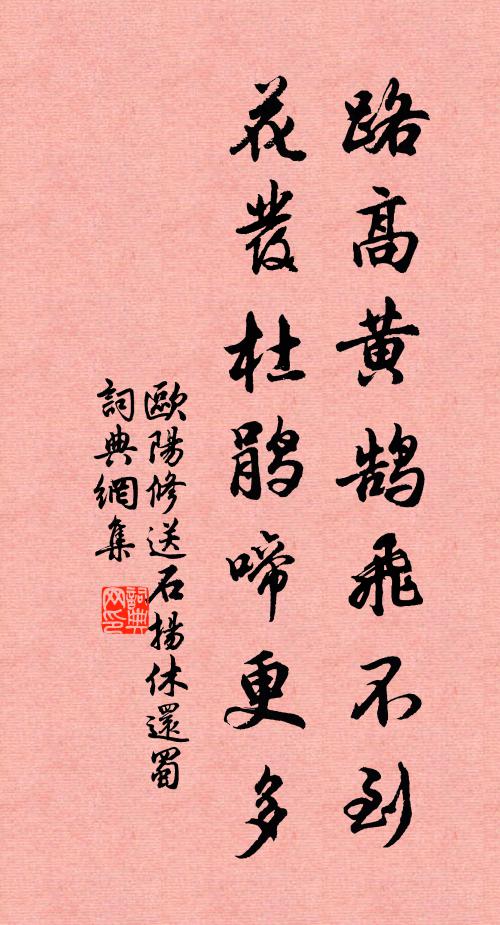 路高黄鹄飛不到
花發杜鹃啼更多
歐陽修送石揚休還蜀
詞典網集
詞典网印